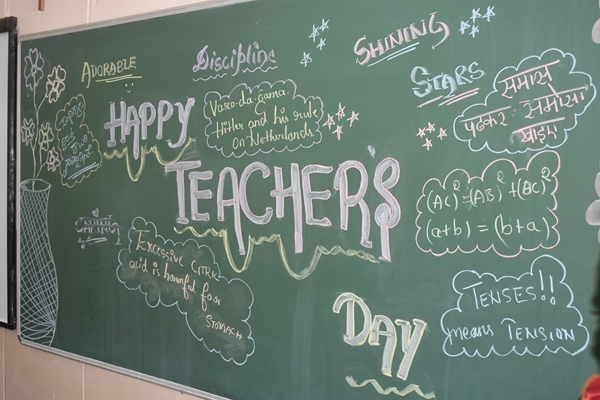 ADORABLE
Discipline
SHINING
STARS
HAPPY
Vasco-da-gama.
Hitler and his rule
on Netherlands
समास
पढ़कर समोसा
खाइए
TEACHER'S
(AC)² = (AB)² + (BC)²
(a+b) = (b+a)
Excessive CITRIC
acid is harmful for
STOMACH
DAY
TENSES!!
means TENSION